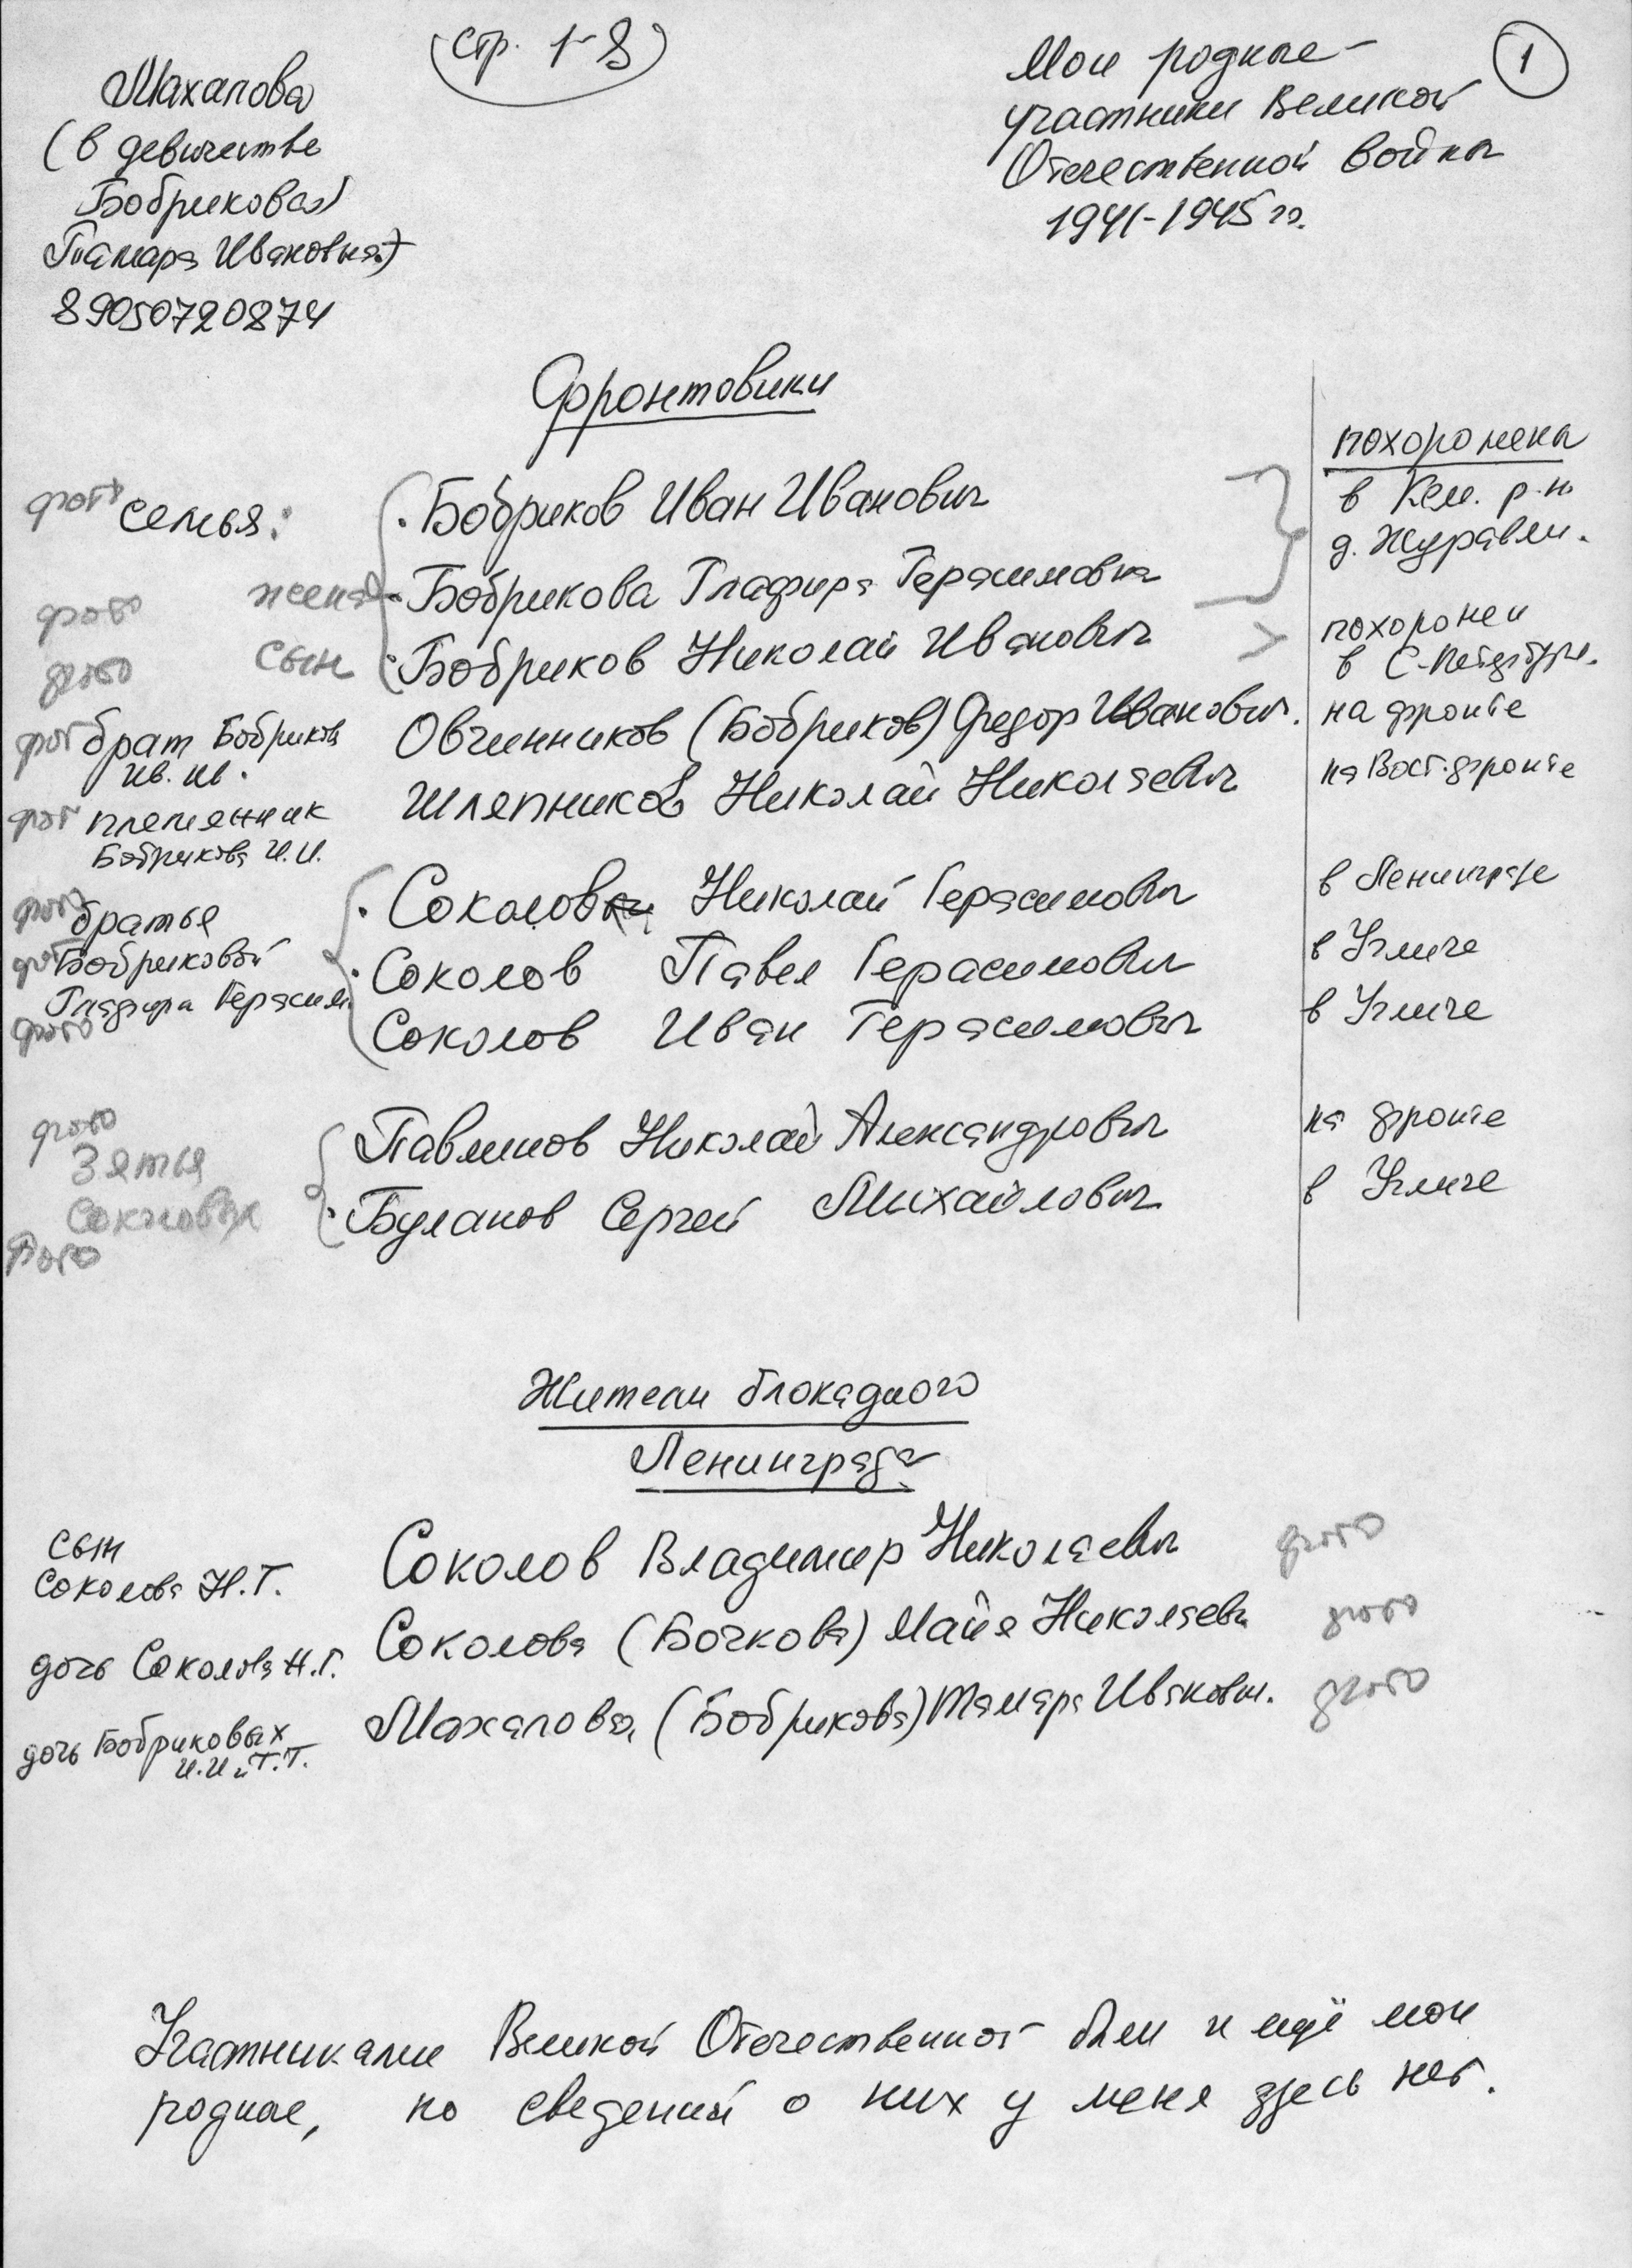 (стр. 1-8)
1
Махалова
(в девичестве
Бобрикова)
Тамара Ивановна)
89050720874
Мои родные -
участники Великой
Отечественной войны
1941-1945 гг.
Фронтовики
похоронены
фото семья: Бобриков Иван Иванович в Кем. р-н
д. Журавли.
фото жена Бобрикова Глафира Герасимовна
фото сын Бобриков Николай Иванович похоронен
в С-Петербург.
фот брат Бобриков Овчинников (Бобриков) Федор Иванович. на фронте
Ив. Ив.
фот племянник Шляпников Николай Николаевич на Вост. фронте
Бобрикова И.И.
фото братья Соколов Николай Герасимович в Ленинграде
фот Бобриковой Соколов Павел Герасимович в Угличе
Глафира Герасим.
фото Соколов Иван Герасимович в Угличе
фото
Зятья Павлинов Николай Александрович на фронте
Соколовых Буланов Сергей Михайлович в Угличе
Фото
Жители блокадного
Ленинграда
сын
Соколова Н.Г. Соколов Владимир Николаевич фото
дочь Соколова Н.Г. Соколова (Бочкова) Майя Николаевн фото
дочь Бобриковых Махалова (Бобрикова) Тамара Ивановн. фото
И.И и Г.Г.
Участниками Великой Отечественной были и ещё мои
родные, но сведений о них у меня здесь нет.